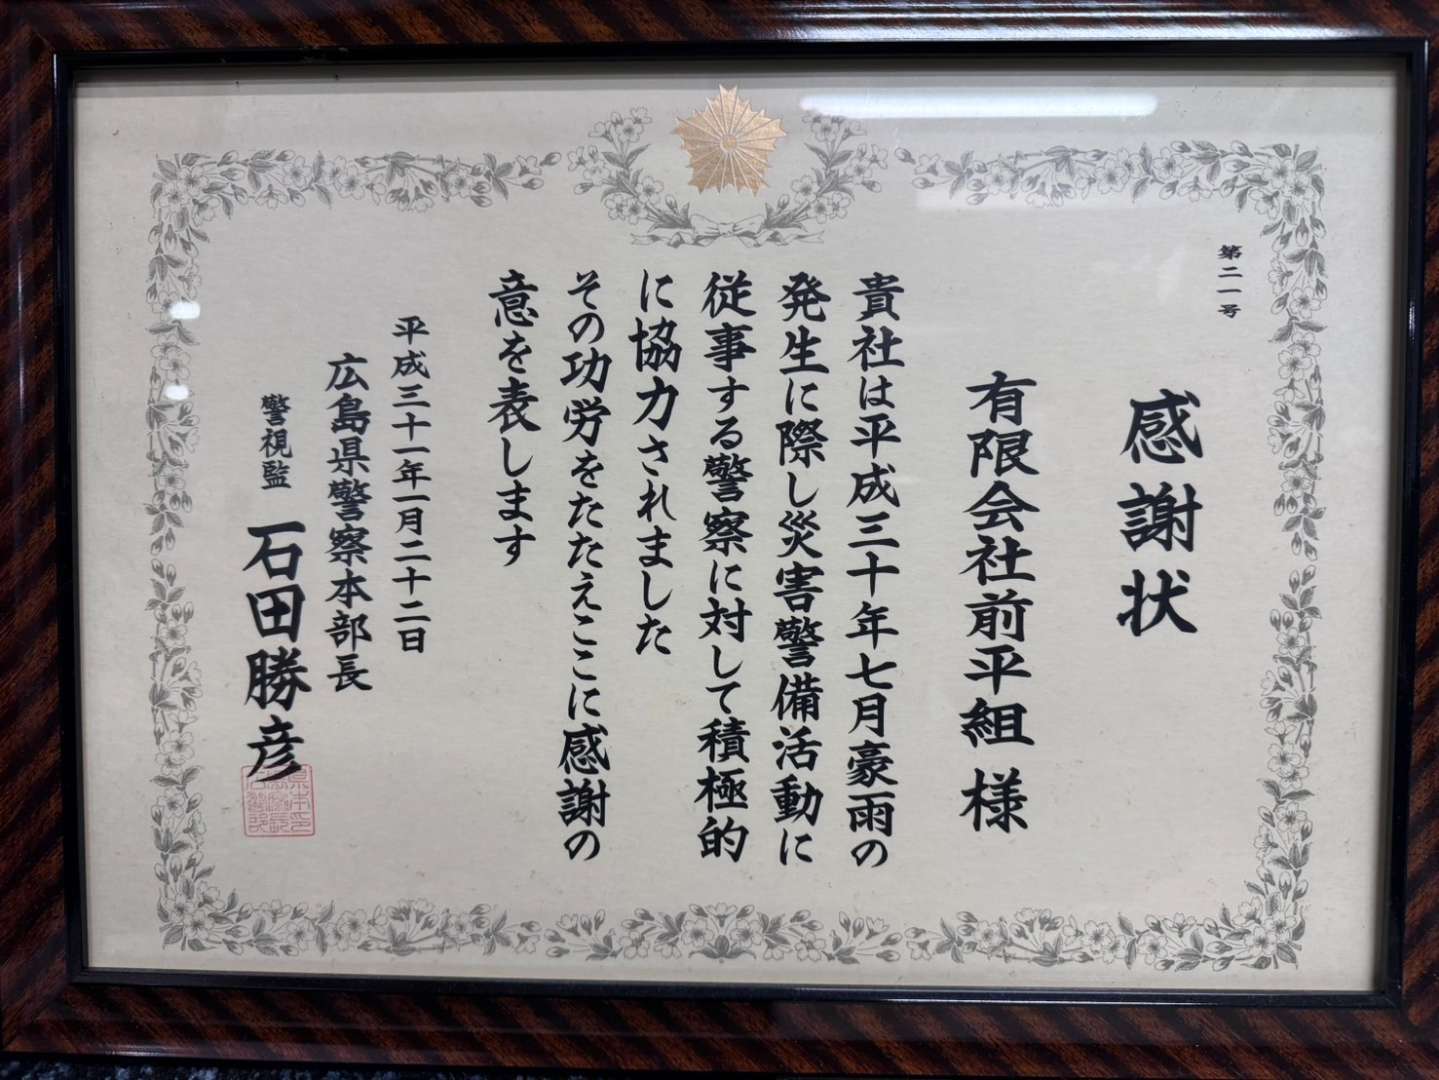 第二一号
感謝状
有限会社前平組 様
貴社は平成三十年七月豪雨の
発生に際し災害警備活動に
従事する警察に対して積極的
に協力されました
その功労をたたえここに感謝の
意を表します
平成三十一年一月二十二日
広島県警察本部長
警視監 石田勝彦